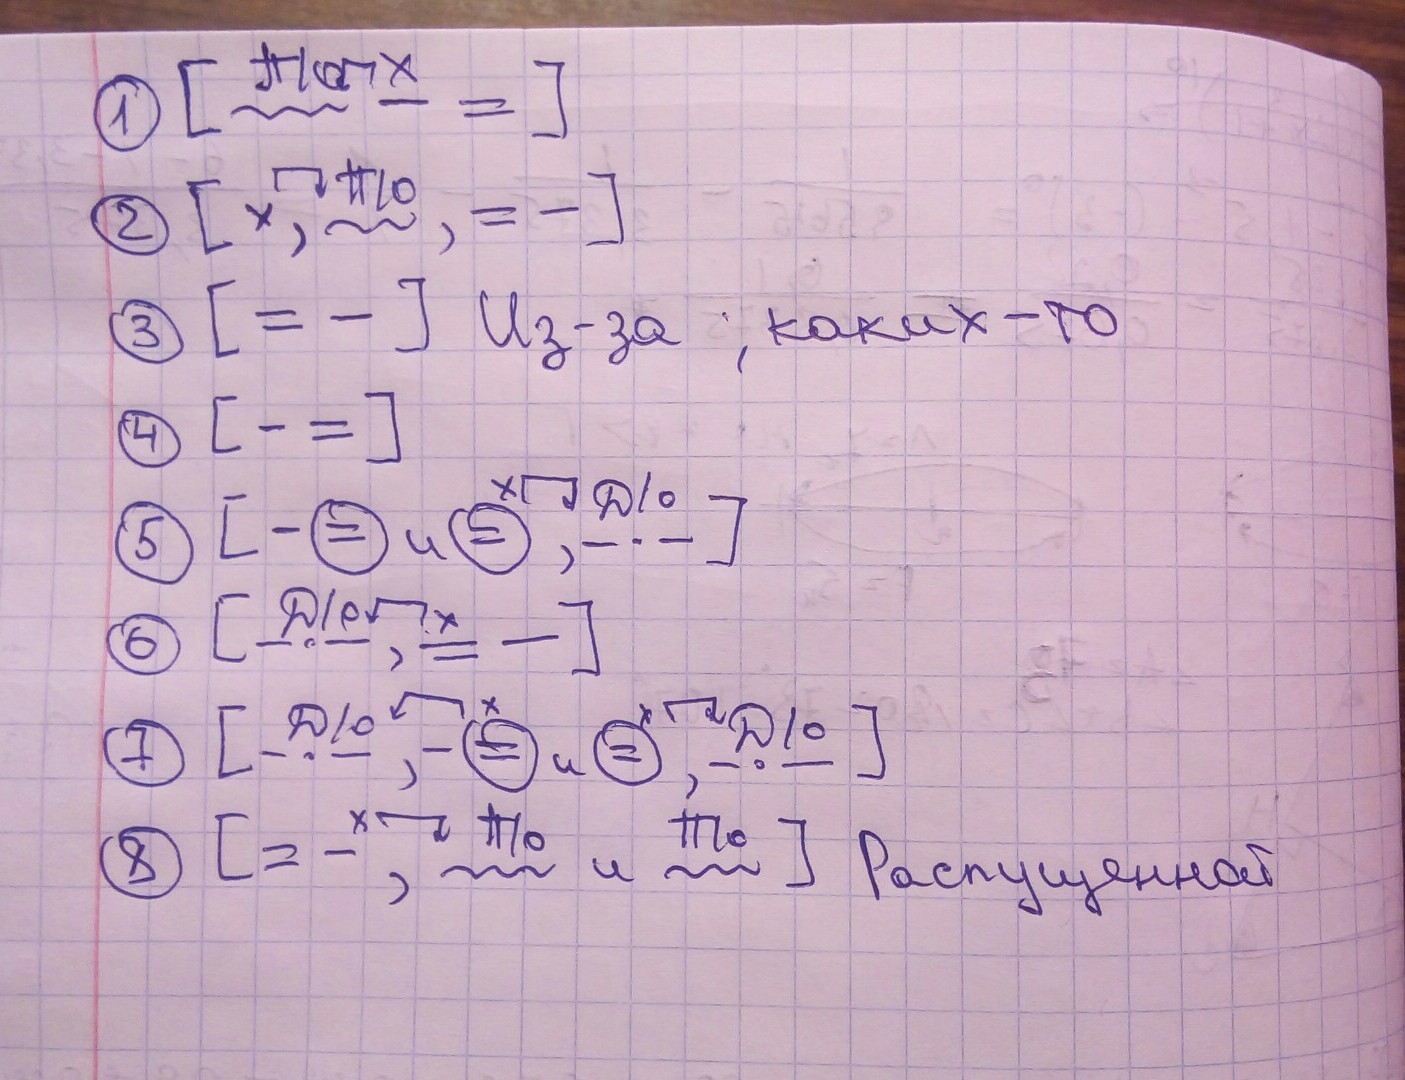 1 [ П/о х — = ]
2 [ х, П/о, = — ]
3 [ = — ] Из-за ; каких-то
4 [ - = ]
5 [ - = и = х, Д/о — · — ]
6 [ Д/о — · —, х = — ]
7 [ Д/о — · —, - = х и = х, Д/о — · — ]
8 [ = — х, П/о и П/о ] Распущенной